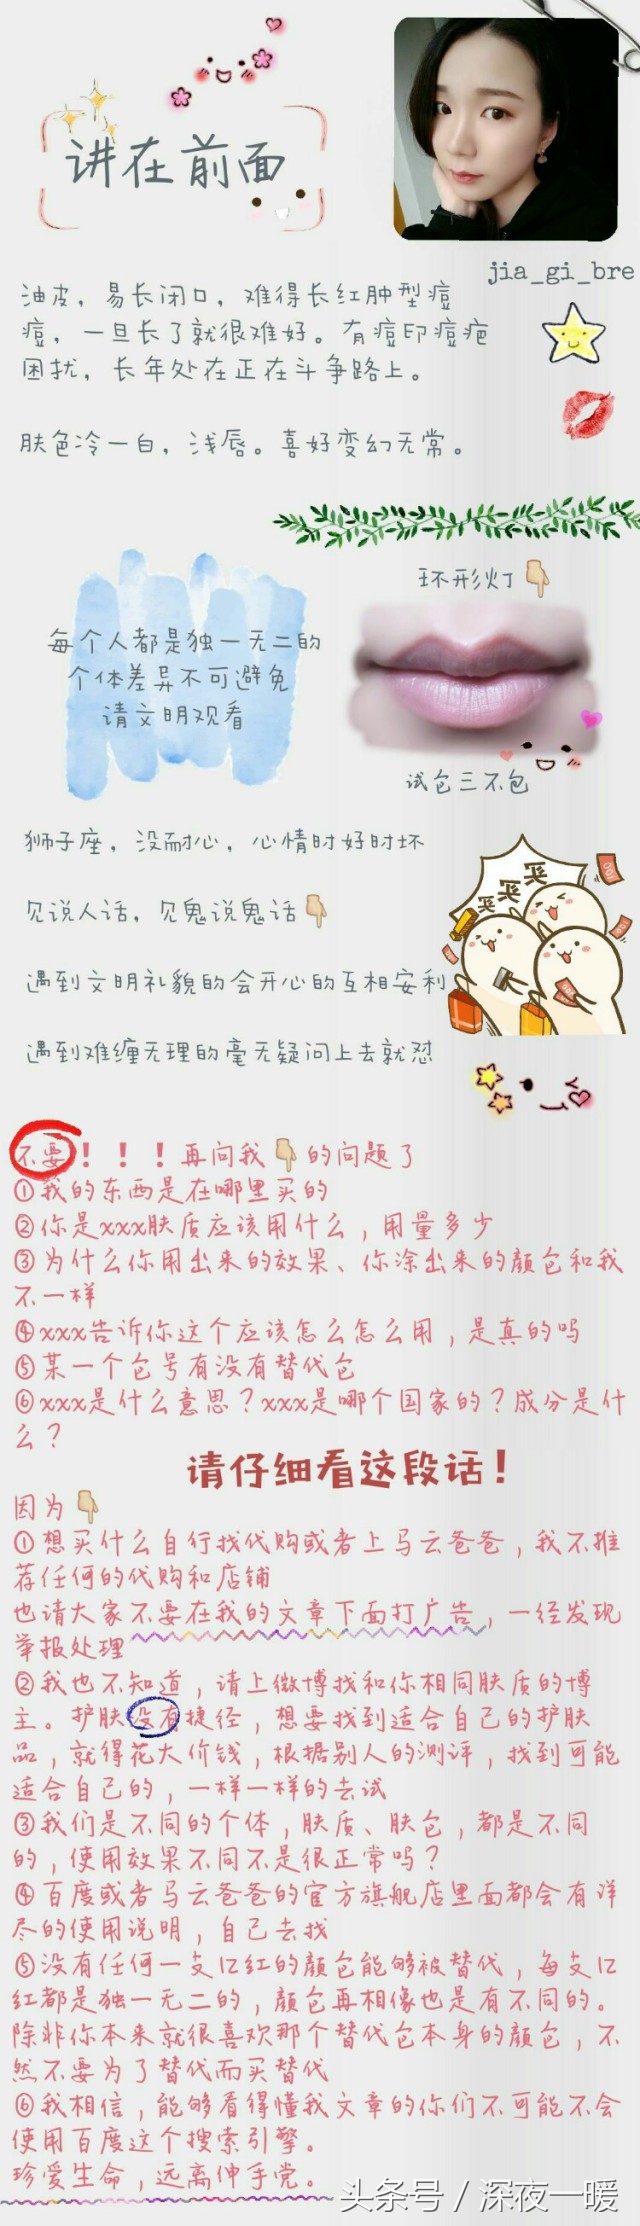 讲在前面
jia_gi_bre
油皮，易长闭口，难得长红肿型痘
痘，一旦长了就很难好。有痘印痘疤
困扰，长年处在正在斗争路上。
肤色冷一白，浅唇。喜好变幻无常。
环形灯
每个人都是独一无二的
个体差异不可避免
请文明观看
试色三不包
狮子座，没耐心，心情时好时坏
买买买
100
见说人话，见鬼说鬼话
遇到文明礼貌的会开心的互相安利
遇到难缠无理的毫无疑问上去就怼
不要！！！再问我的问题了
①我的东西是在哪里买的
②你是xxx肤质应该用什么，用量多少
③为什么你用出来的效果、你涂出来的颜色和我
不一样
④xxx告诉你这个应该怎么怎么用，是真的吗
⑤某一个色号有没有替代色
⑥xxx是什么意思？xxx是哪个国家的？成分是什
么？
请仔细看这段话！
因为
①想买什么自行找代购或者上马云爸爸，我不推
荐任何的代购和店铺
也请大家不要在我的文章下面打广告，一经发现
举报处理
②我也不知道，请上微博找和你相同肤质的博
主。护肤没有捷径，想要找到适合自己的护肤
品，就得花大价钱，根据别人的测评，找到可能
适合自己的，一样一样的去试
③我们是不同的个体，肤质、肤色，都是不同
的，使用效果不同不是很正常吗？
④百度或者马云爸爸的官方旗舰店里面都会有详
尽的使用说明，自己去找
⑤没有任何一支口红的颜色能够被替代，每支口
红都是独一无二的，颜色再相像也是有不同的。
除非你本来就很喜欢那个替代色本身的颜色，不
然不要为了替代而买替代
⑥我相信，能够看得懂我文章的你们不可能不会
使用百度这个搜索引擎。
珍爱生命，远离伸手党。
头条号／深夜一暖